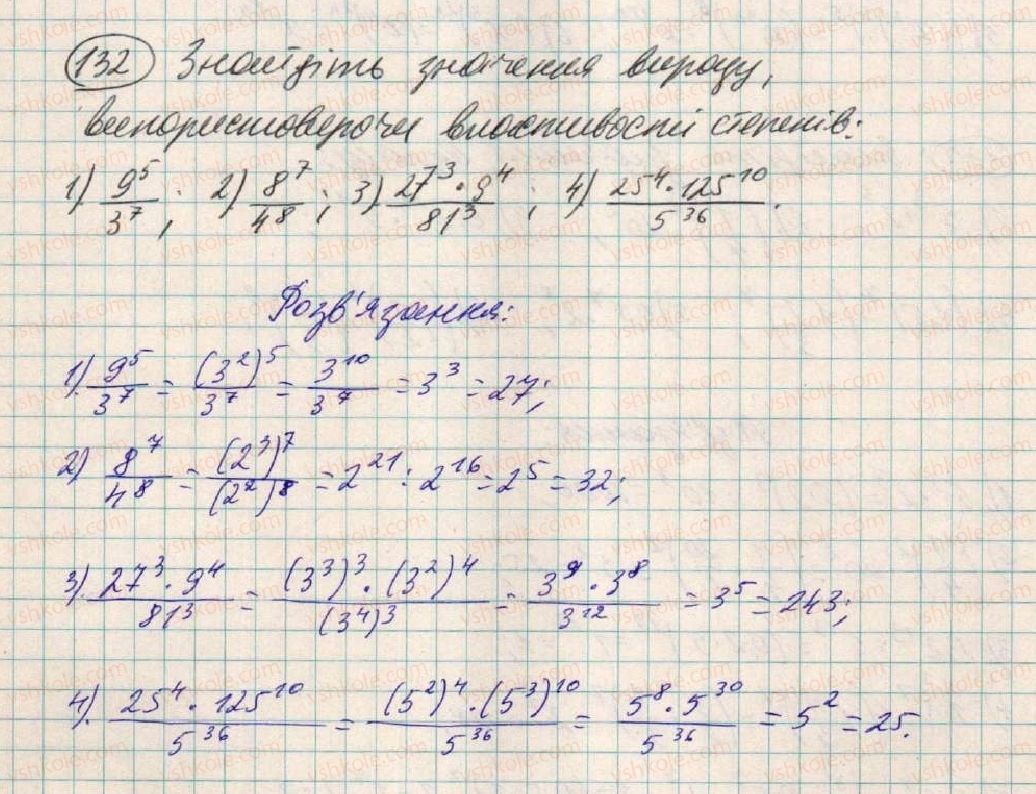 132 Знайдіть значення виразу,
використовуючи властивості степенів:
1) 9^5/3^7; 2) 8^7/4^8; 3) 27^3·9^4/81^3; 4) 25^4·125^10/5^36.
Розв'язання:
1). 9^5/3^7 = (3^2)^5/3^7 = 3^10/3^7 = 3^3 = 27;
2) 8^7/4^8 = (2^3)^7/(2^2)^8 = 2^21 : 2^16 = 2^5 = 32;
3) 27^3·9^4/81^3 = (3^3)^3·(3^2)^4/(3^4)^3 = 3^9·3^8/3^12 = 3^5 = 243;
4). 25^4·125^10/5^36 = (5^2)^4·(5^3)^10/5^36 = 5^8·5^30/5^36 = 5^2 = 25.
vshkole.com